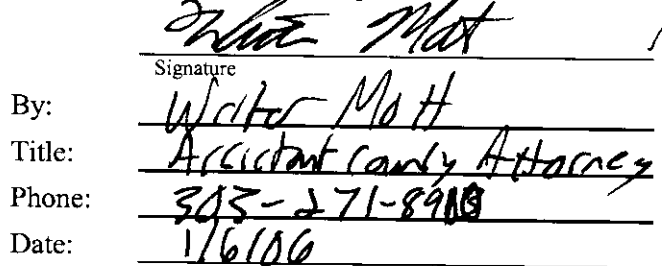 Writer Mott
Signature
By: Writer Mott
Title: Assistant County Attorney
Phone: 303-271-89
Date: 1/6/06